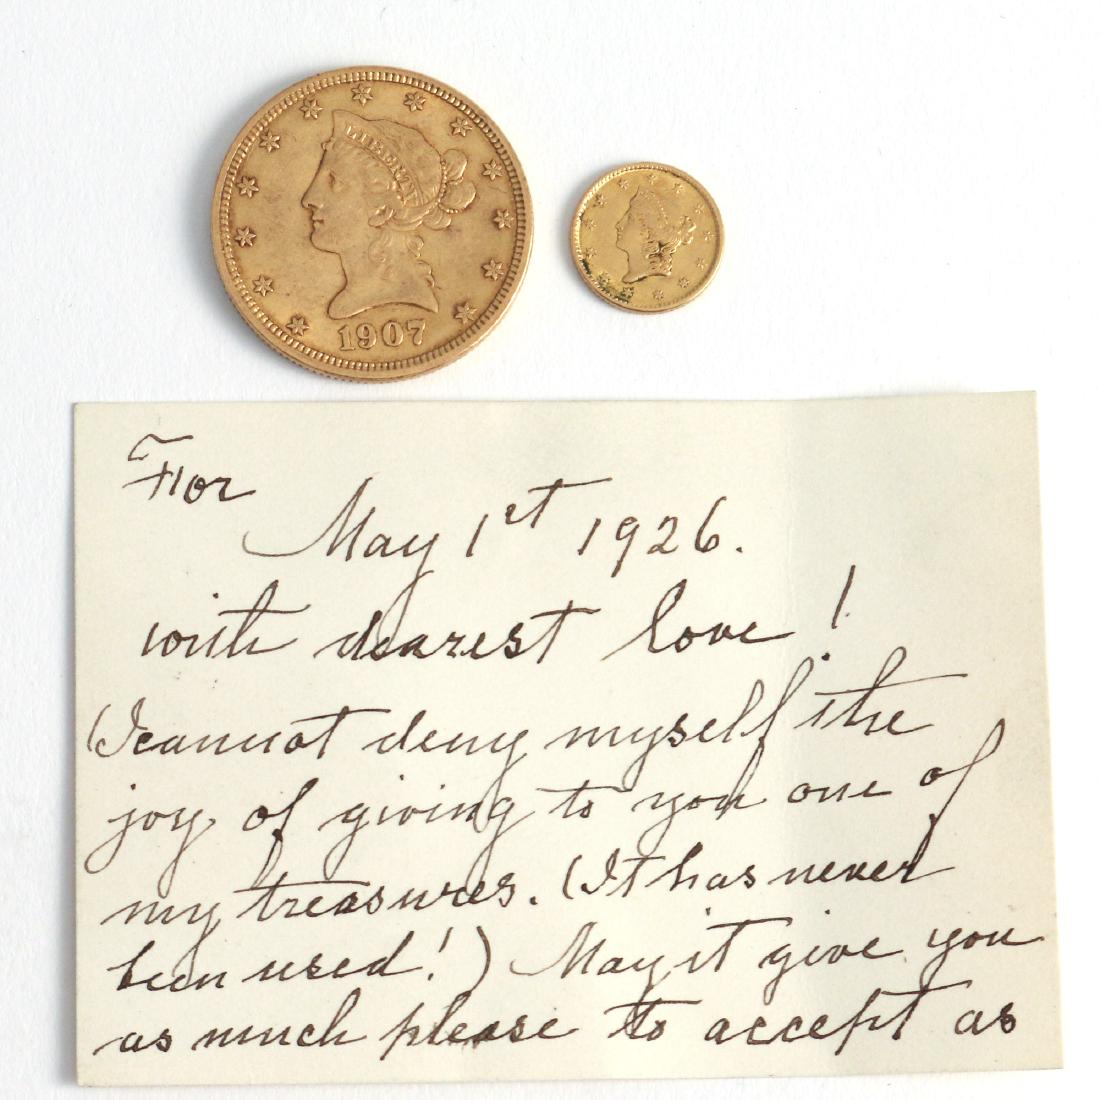 LIBERTY
1907
For
May 1st 1926.
with dearest love!
(I cannot deny myself the
joy of giving to you one of
my treasures. (It has never
been used!) May it give you
as much please to accept as